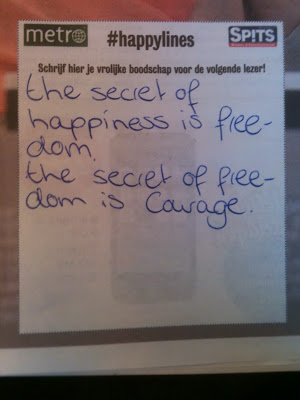 metro #happylines SPITS
Schrijf hier je vrolijke boodschap voor de volgende lezer!
the secret of
happiness is free-
dom.
the secret of free-
dom is Courage.